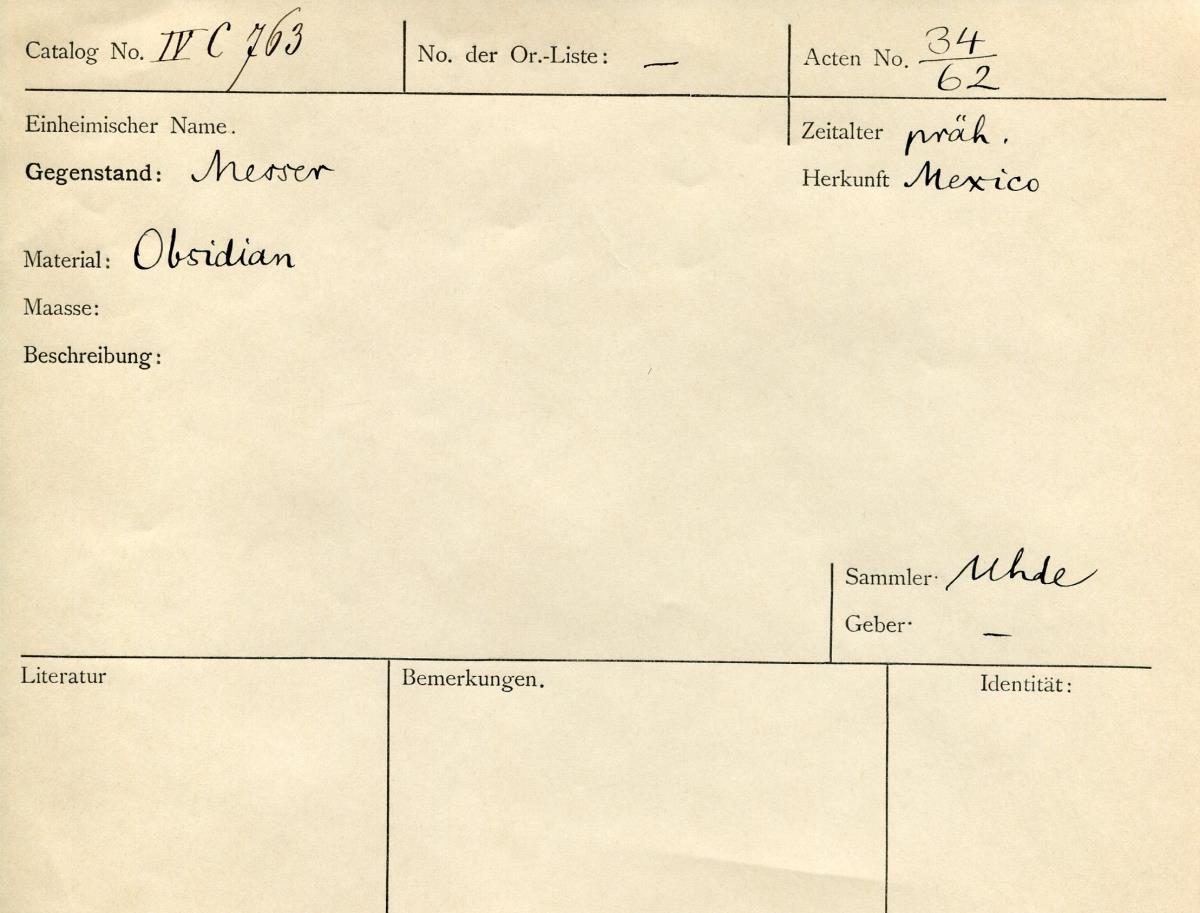 Catalog No. IV C 763
No. der Or.-Liste: —
Acten No. 34/62
Einheimischer Name.
Zeitalter präh.
Gegenstand: Messer
Herkunft Mexico
Material: Obsidian
Maasse:
Beschreibung:
Sammler· Uhde
Geber· —
Literatur
Bemerkungen.
Identität: